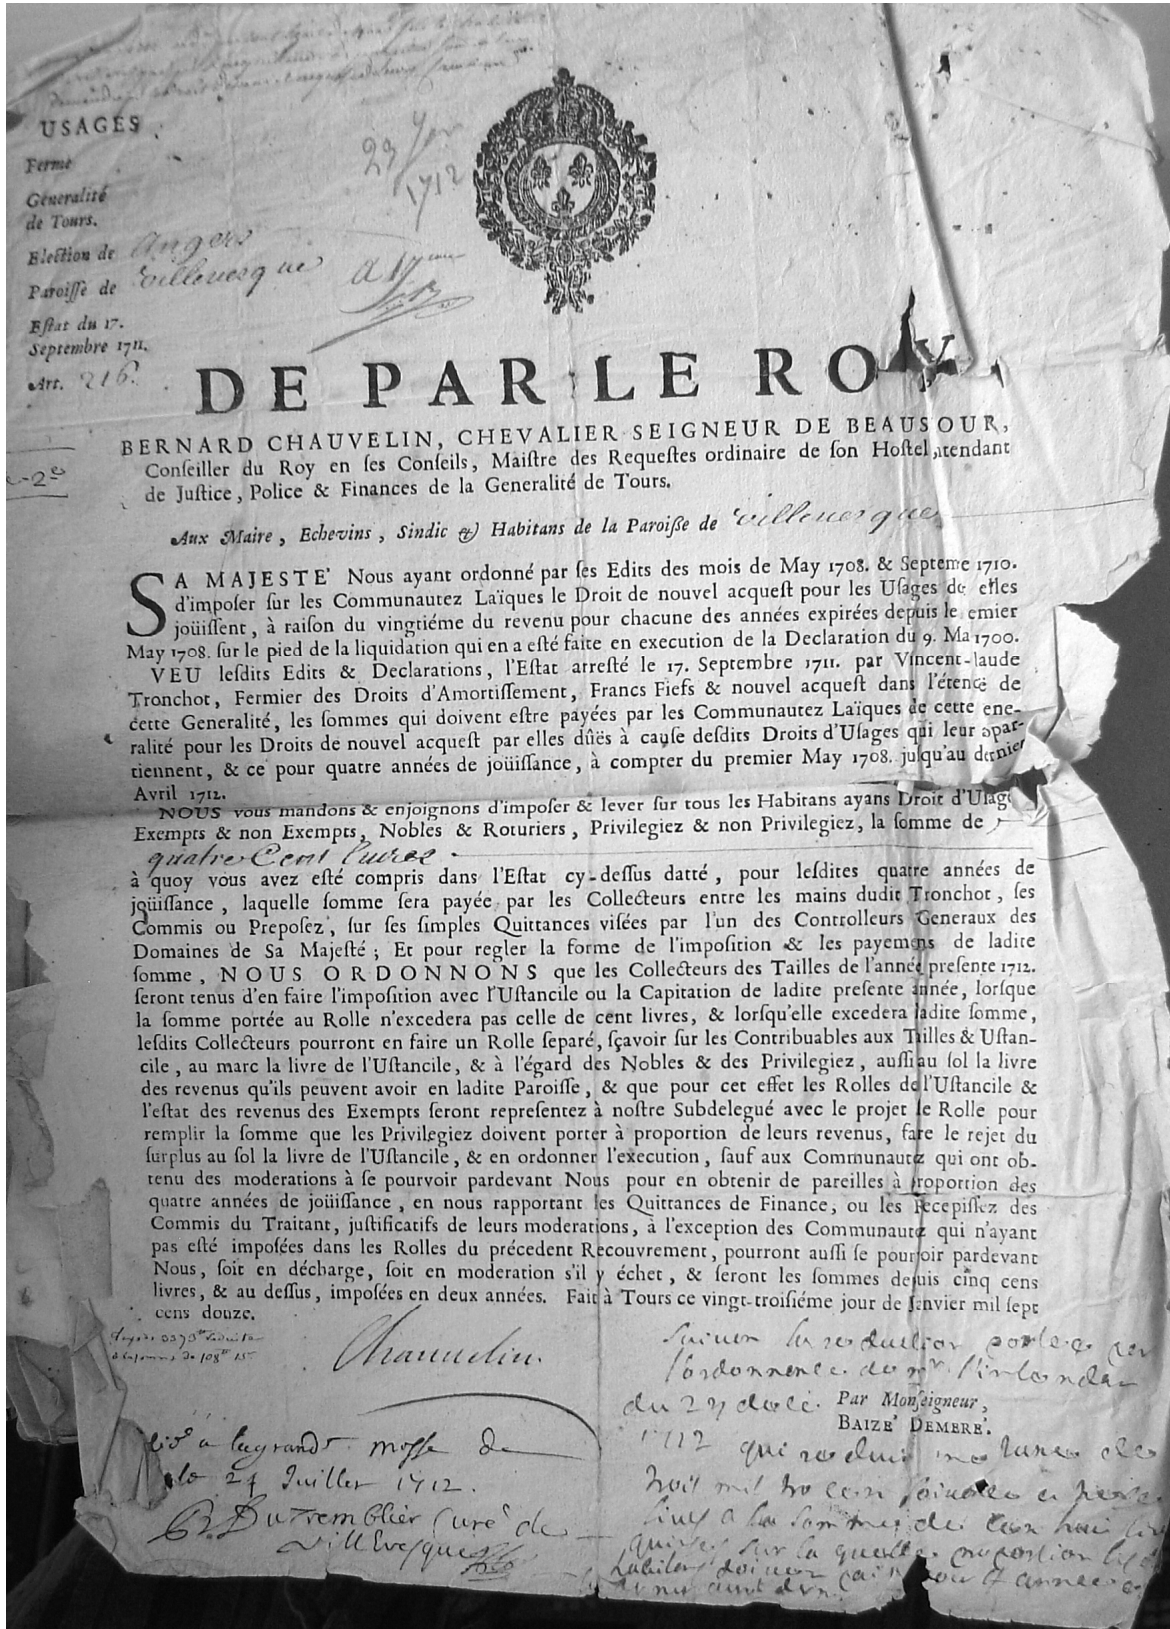 USAGES
Ferme
Generalité
de Tours.
Election de Angers
Paroisse de Villeuesque
Estat du 17.
Septembre 1711.
Art. 216.
23
1712
DE PAR LE ROY
BERNARD CHAUVELIN, CHEVALIER SEIGNEUR DE BEAUSOUR,
Conseiller du Roy en ses Conseils, Maistre des Requestes ordinaire de son Hostel, tendant
de Justice, Police & Finances de la Generalité de Tours.
Aux Maire, Echevins, Sindic & Habitans de la Paroisse de Villeuesque
SA MAJESTE' Nous ayant ordonné par ses Edits des mois de May 1708. & Septeme 1710.
d'imposer sur les Communautez Laïques le Droit de nouvel acquest pour les Usages de elles
joüissent, à raison du vingtiéme du revenu pour chacune des années expirées depuis le emier
May 1708. sur le pied de la liquidation qui en a esté faite en execution de la Declaration du 9. Ma 1700.
VEU lesdits Edits & Declarations, l'Estat arresté le 17. Septembre 1711. par Vincent-laude
Tronchot, Fermier des Droits d'Amortissement, Francs Fiefs & nouvel acquest dans l'étenë de
cette Generalité, les sommes qui doivent estre payées par les Communautez Laïques de cette ene-
ralité pour les Droits de nouvel acquest par elles dûës à cause desdits Droits d'Usages qui leur apar-
tiennent, & ce pour quatre années de joüissance, à compter du premier May 1708. jusqu'au dernier
Avril 1712.
NOUS vous mandons & enjoignons d'imposer & lever sur tous les Habitans ayans Droit d'Usage
Exempts & non Exempts, Nobles & Roturiers, Privilegiez & non Privilegiez, la somme de
quatre Cent liures
à quoy vous avez esté compris dans l'Estat cy-dessus datté, pour lesdites quatre années de
joüissance, laquelle somme sera payée par les Collecteurs entre les mains dudit Tronchot, ses
Commis ou Preposez, sur ses simples Quittances visées par l'un des Controlleurs Generaux des
Domaines de Sa Majesté; Et pour regler la forme de l'imposition & les payemens de ladite
somme, NOUS ORDONNONS que les Collecteurs des Tailles de l'année presente 1712.
seront tenus d'en faire l'imposition avec l'Ustancile ou la Capitation de ladite presente année, lorsque
la somme portée au Rolle n'excedera pas celle de cent livres, & lorsqu'elle excedera ladite somme,
lesdits Collecteurs pourront en faire un Rolle separé, sçavoir sur les Contribuables aux Tailles & Ustan-
cile, au marc la livre de l'Ustancile, & à l'égard des Nobles & des Privilegiez, aussi au sol la livre
des revenus qu'ils peuvent avoir en ladite Paroisse, & que pour cet effet les Rolles de l'Ustancile &
l'estat des revenus des Exempts seront representez à nostre Subdelegué avec le projet de Rolle pour
remplir la somme que les Privilegiez doivent porter à proportion de leurs revenus, faire le rejet du
surplus au sol la livre de l'Ustancile, & en ordonner l'execution, sauf aux Communautez qui ont ob-
tenu des moderations à se pourvoir pardevant Nous pour en obtenir de pareilles à proportion des
quatre années de joüissance, en nous rapportant les Quittances de Finance, ou les Recepissez des
Commis du Traitant, justificatifs de leurs moderations, à l'exception des Communautez qui n'ayant
pas esté imposées dans les Rolles du précedent Recouvrement, pourront aussi se pourvoir pardevant
Nous, soit en décharge, soit en moderation s'il y échet, & seront les sommes depuis cinq cens
livres, & au dessus, imposées en deux années. Fait à Tours ce vingt-troisiéme jour de Janvier mil sept
cens douze.
Chauuelin.
Suiuen la reduction portee par
l'ordonnence de mr l'intendan
du 27
Par Monseigneur,
BAIZE' DEMERE'.
1712 qui
a la grande messe de
le 24 Juillet 1712.
DuTremblier Curé de
VillEvesque
a la somme de Cent huit
sur la quelle